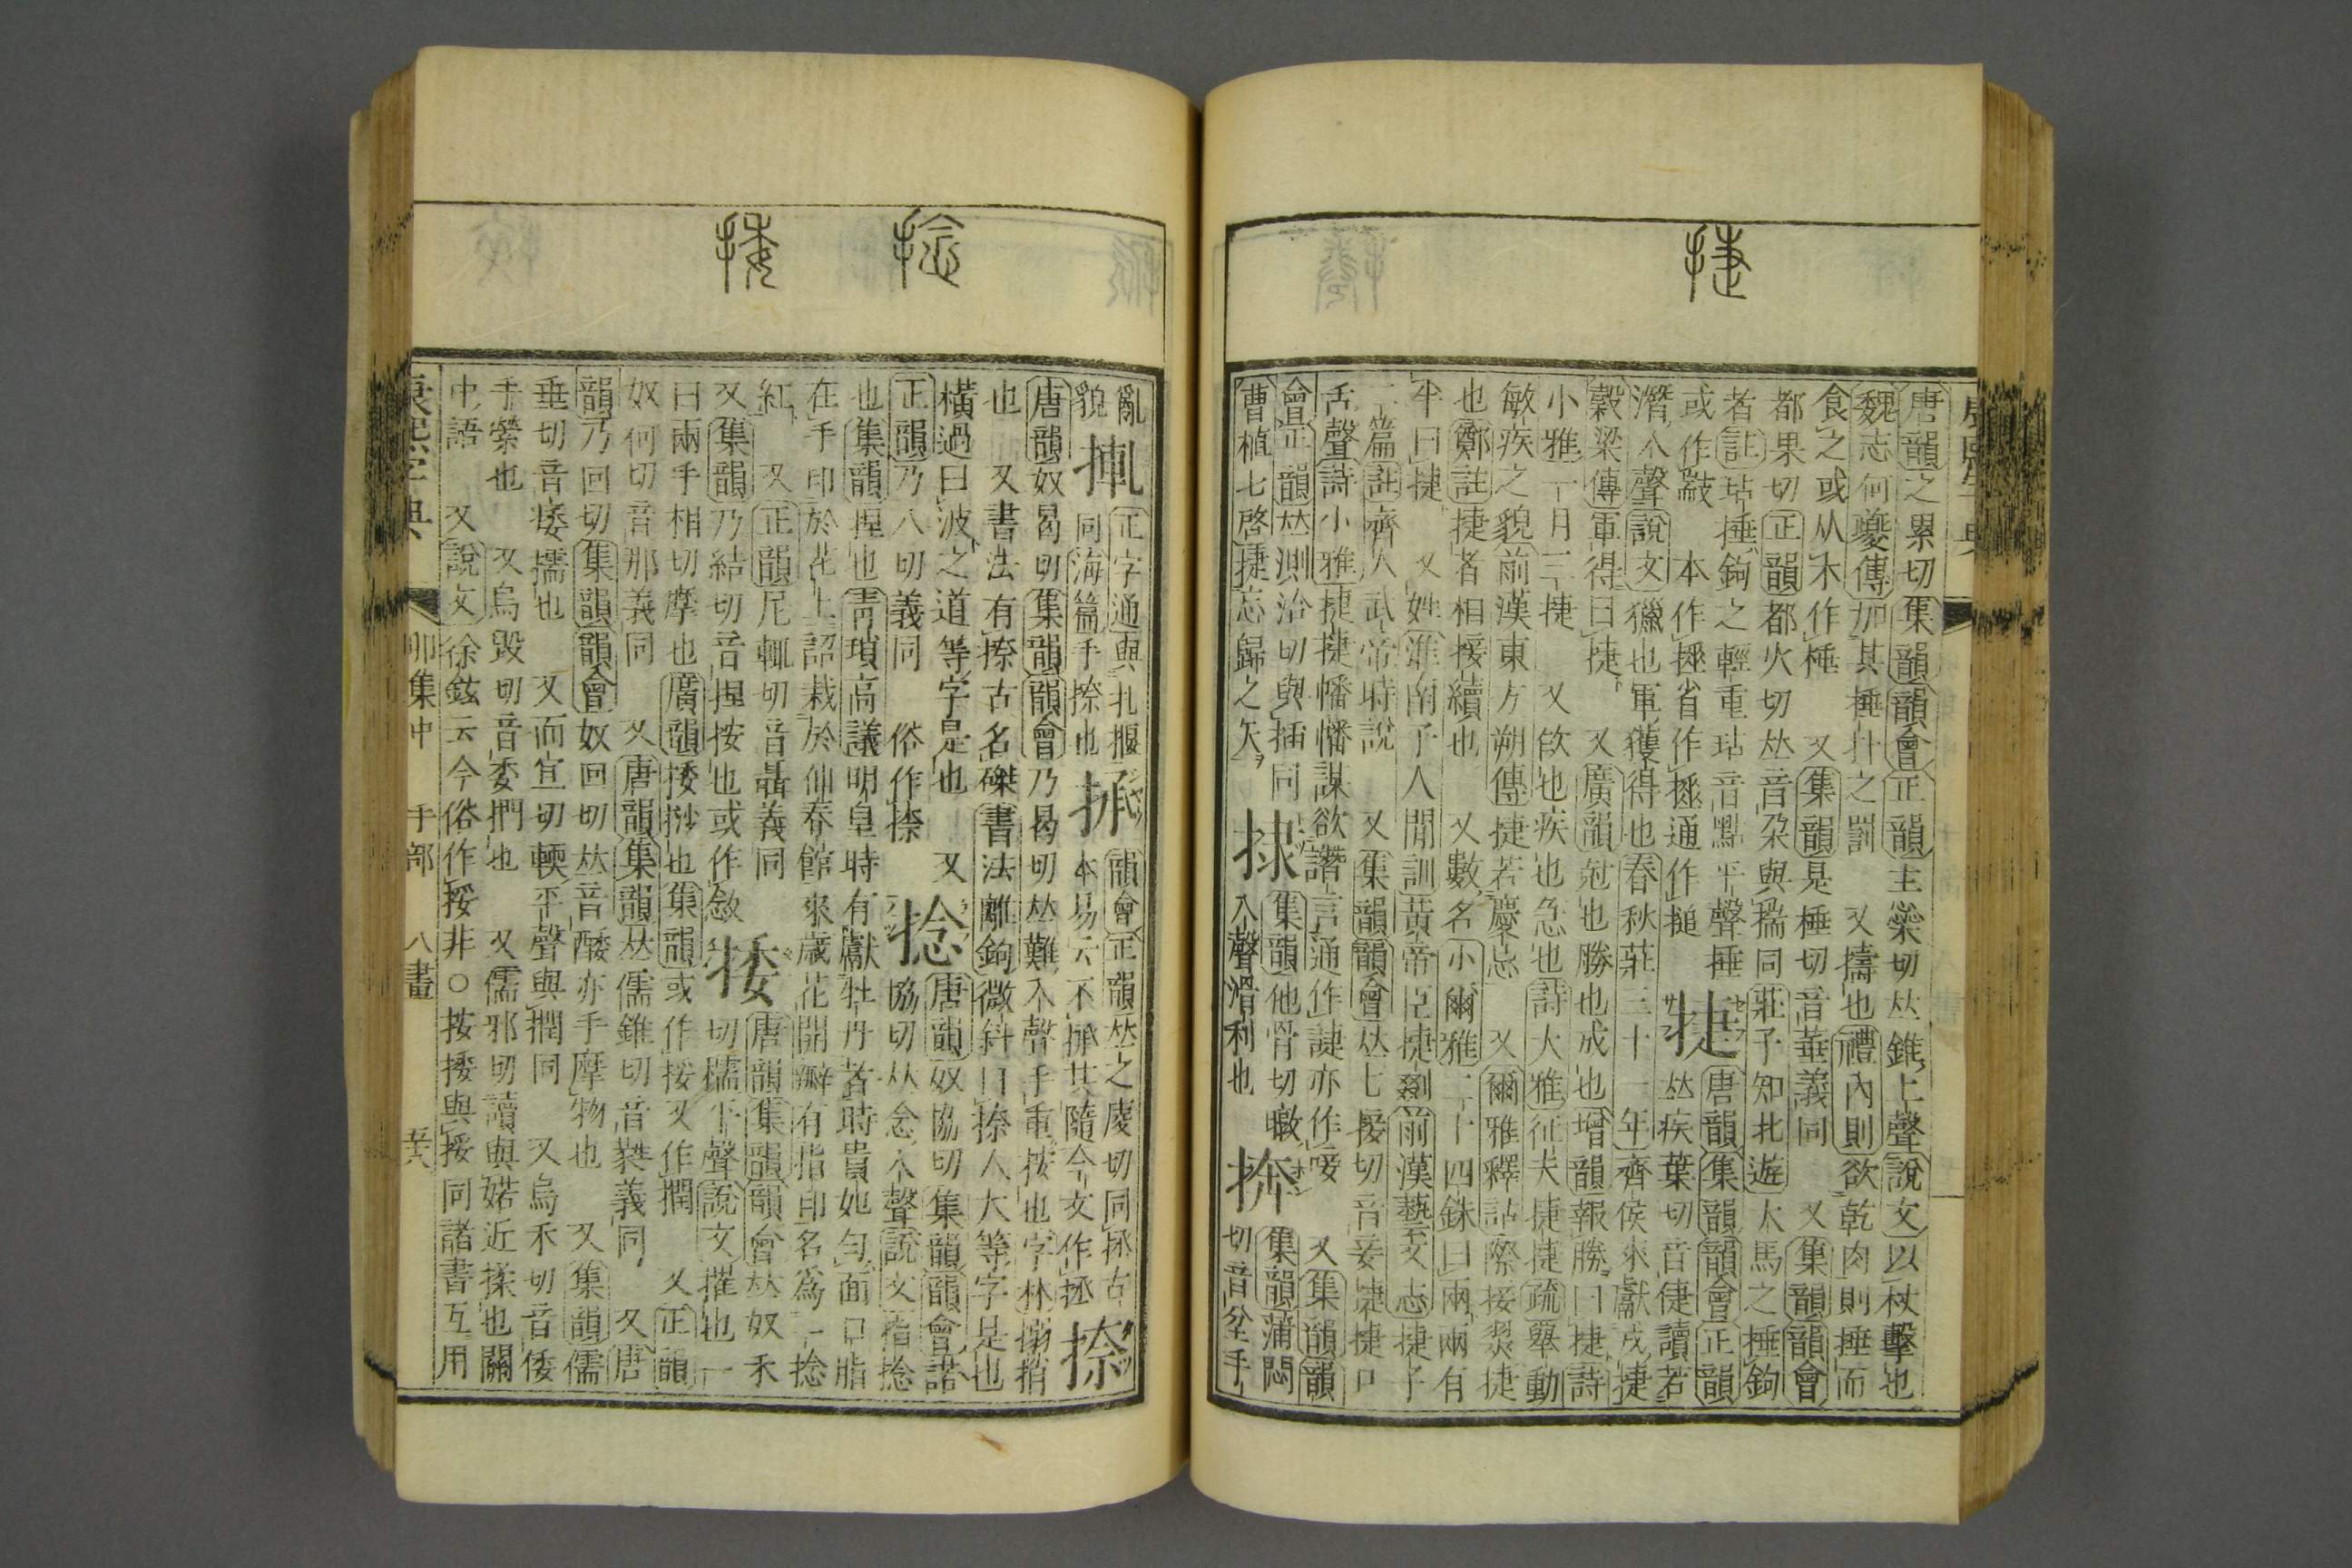 捷
唐韻之累切集韻韻會正韻主橤切𠀤錐上聲說文以杖擊也
魏志何夔傳加其捶扑之罰 又擣也禮內則欲乾肉則捶而
食之或从木作棰 又集韻是棰切音菙義同 又集韻韻會
都果切正韻都火切𠀤音朶與揣同莊子知北遊大馬之捶鉤
者註玷捶鉤之輕重玷音點平聲捶
或作㪜 本作𢳎省作捶通作搥 捷
唐韻集韻韻會正韻
𠀤疾葉切音倢讀若
潛入聲說文獵也軍獲得也春秋莊三十一年齊侯來獻戎捷
穀梁傳軍得曰捷 又廣韻尅也勝也成也增韻報勝曰捷詩
小雅一月三捷 又欨也疾也急也詩大雅征夫捷捷疏舉動
敏疾之貌前漢東方朔傳捷若慶忌 又爾雅釋詁際接翜捷
也鄭註捷者相接續也 又數名小爾雅二十四銖曰兩兩有
半曰捷 又姓淮南子人閒訓黃帝臣捷剟前漢藝文志捷子
二篇註齊人武帝時說 又集韻韻會𠀤七接切音妾捷捷口
舌聲詩小雅捷捷幡幡謀欲譖言通作諜亦作唼 又集韻韻
會正韻𠀤測洽切與插同
曹植七啓捷忘歸之矢 㨊
集韻他骨切暾
入聲滑利也 捹
集韻蒲悶
切音坌手
捻
捼
亂
貌 㨋
正字通與扎揠
同海篇手捺也 㨃
韻會正韻𠀤之慶切同拯古
本易云不拯其隨今文作拯 捺
唐韻奴曷切集韻韻會乃曷切𠀤難入聲手重按也字林搦捎
也 又書法有捺古名磔書法離鉤微斜曰捺人大等字是也
橫過曰波之道等字是也 又
正韻乃八切義同 俗作捺 捻
唐韻奴協切集韻韻會諾
協切𠀤念入聲說文指捻
也集韻捏也靑瑣高議明皇時有獻牡丹者時貴妃勻面口脂
在手印於花上詔栽於仙春館來歲花開瓣有指印名爲一捻
紅 又正韻尼輒切音聶義同
又集韻乃結切音捏按也或作敜 捼
唐韻集韻韻會𠀤奴禾
切懦平聲說文摧也一
曰兩手相切摩也廣韻捼挱也集韻或作挼又作撋 又正韻
奴何切音那義同 又唐韻集韻𠀤儒錐切音蕤義同 又唐
韻乃回切集韻韻會奴回切𠀤音醀亦手摩物也 又集韻儒
垂切音痿擩也 又而宣切輭平聲與撋同 又烏禾切音倭
手縈也 又烏毀切音委捫也 又儒邪切讀與婼近揉也關
中語 又說文徐鉉云今俗作挼非○按捼與挼同諸書互用
康熙字典 卯集中 手部 八畫